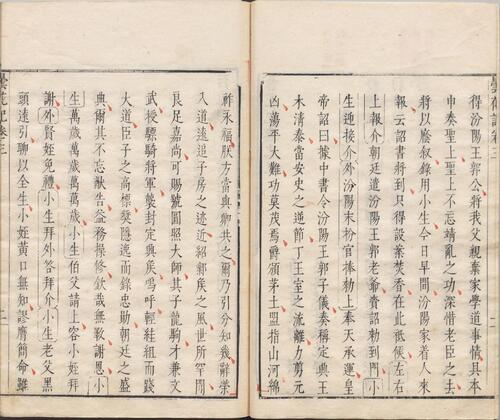 得汾陽王郭公將我父親棄家學道事情具本
申奏聖上聖上不忘靖亂之功深惜老臣之去
將以廕叙錄用小生今日早間汾陽家着人來
報云詔書將到只得設案焚香在此祗候左右
上報介朝廷遣汾陽王郭老爺賫詔勅到門小
生迎接介外汾陽末扮官捧勅上奉天承運皇
帝詔曰據中書令汾陽王郭子儀奏稱定興王
木清泰當安史之逆節丁王室之流離力剪元
凶蕩平大難功莫茂焉爵頒茅土盟指山河綿
祚承福朕方當與卿共之爾乃引分知幾辭榮
入道遠追子房之迹近紹鄴侯之風世所罕聞
良足嘉尚可賜號圓照大師其子龍駒才兼文
武授驃騎將軍襲封定興侯嗚呼輕絓組而踐
大道臣子之高標發隱逸而錄忠勛朝廷之盛
典爾其不忘猷告益務操修欽哉無斁謝恩小
生萬歲萬歲萬萬歲小生伯父請上容小姪拜
謝外賢姪免禮小生拜外答拜介小生老父黑
頭遠引聊以全生小姪黃口無知謬膺簡命雖
曇花記卷三
二